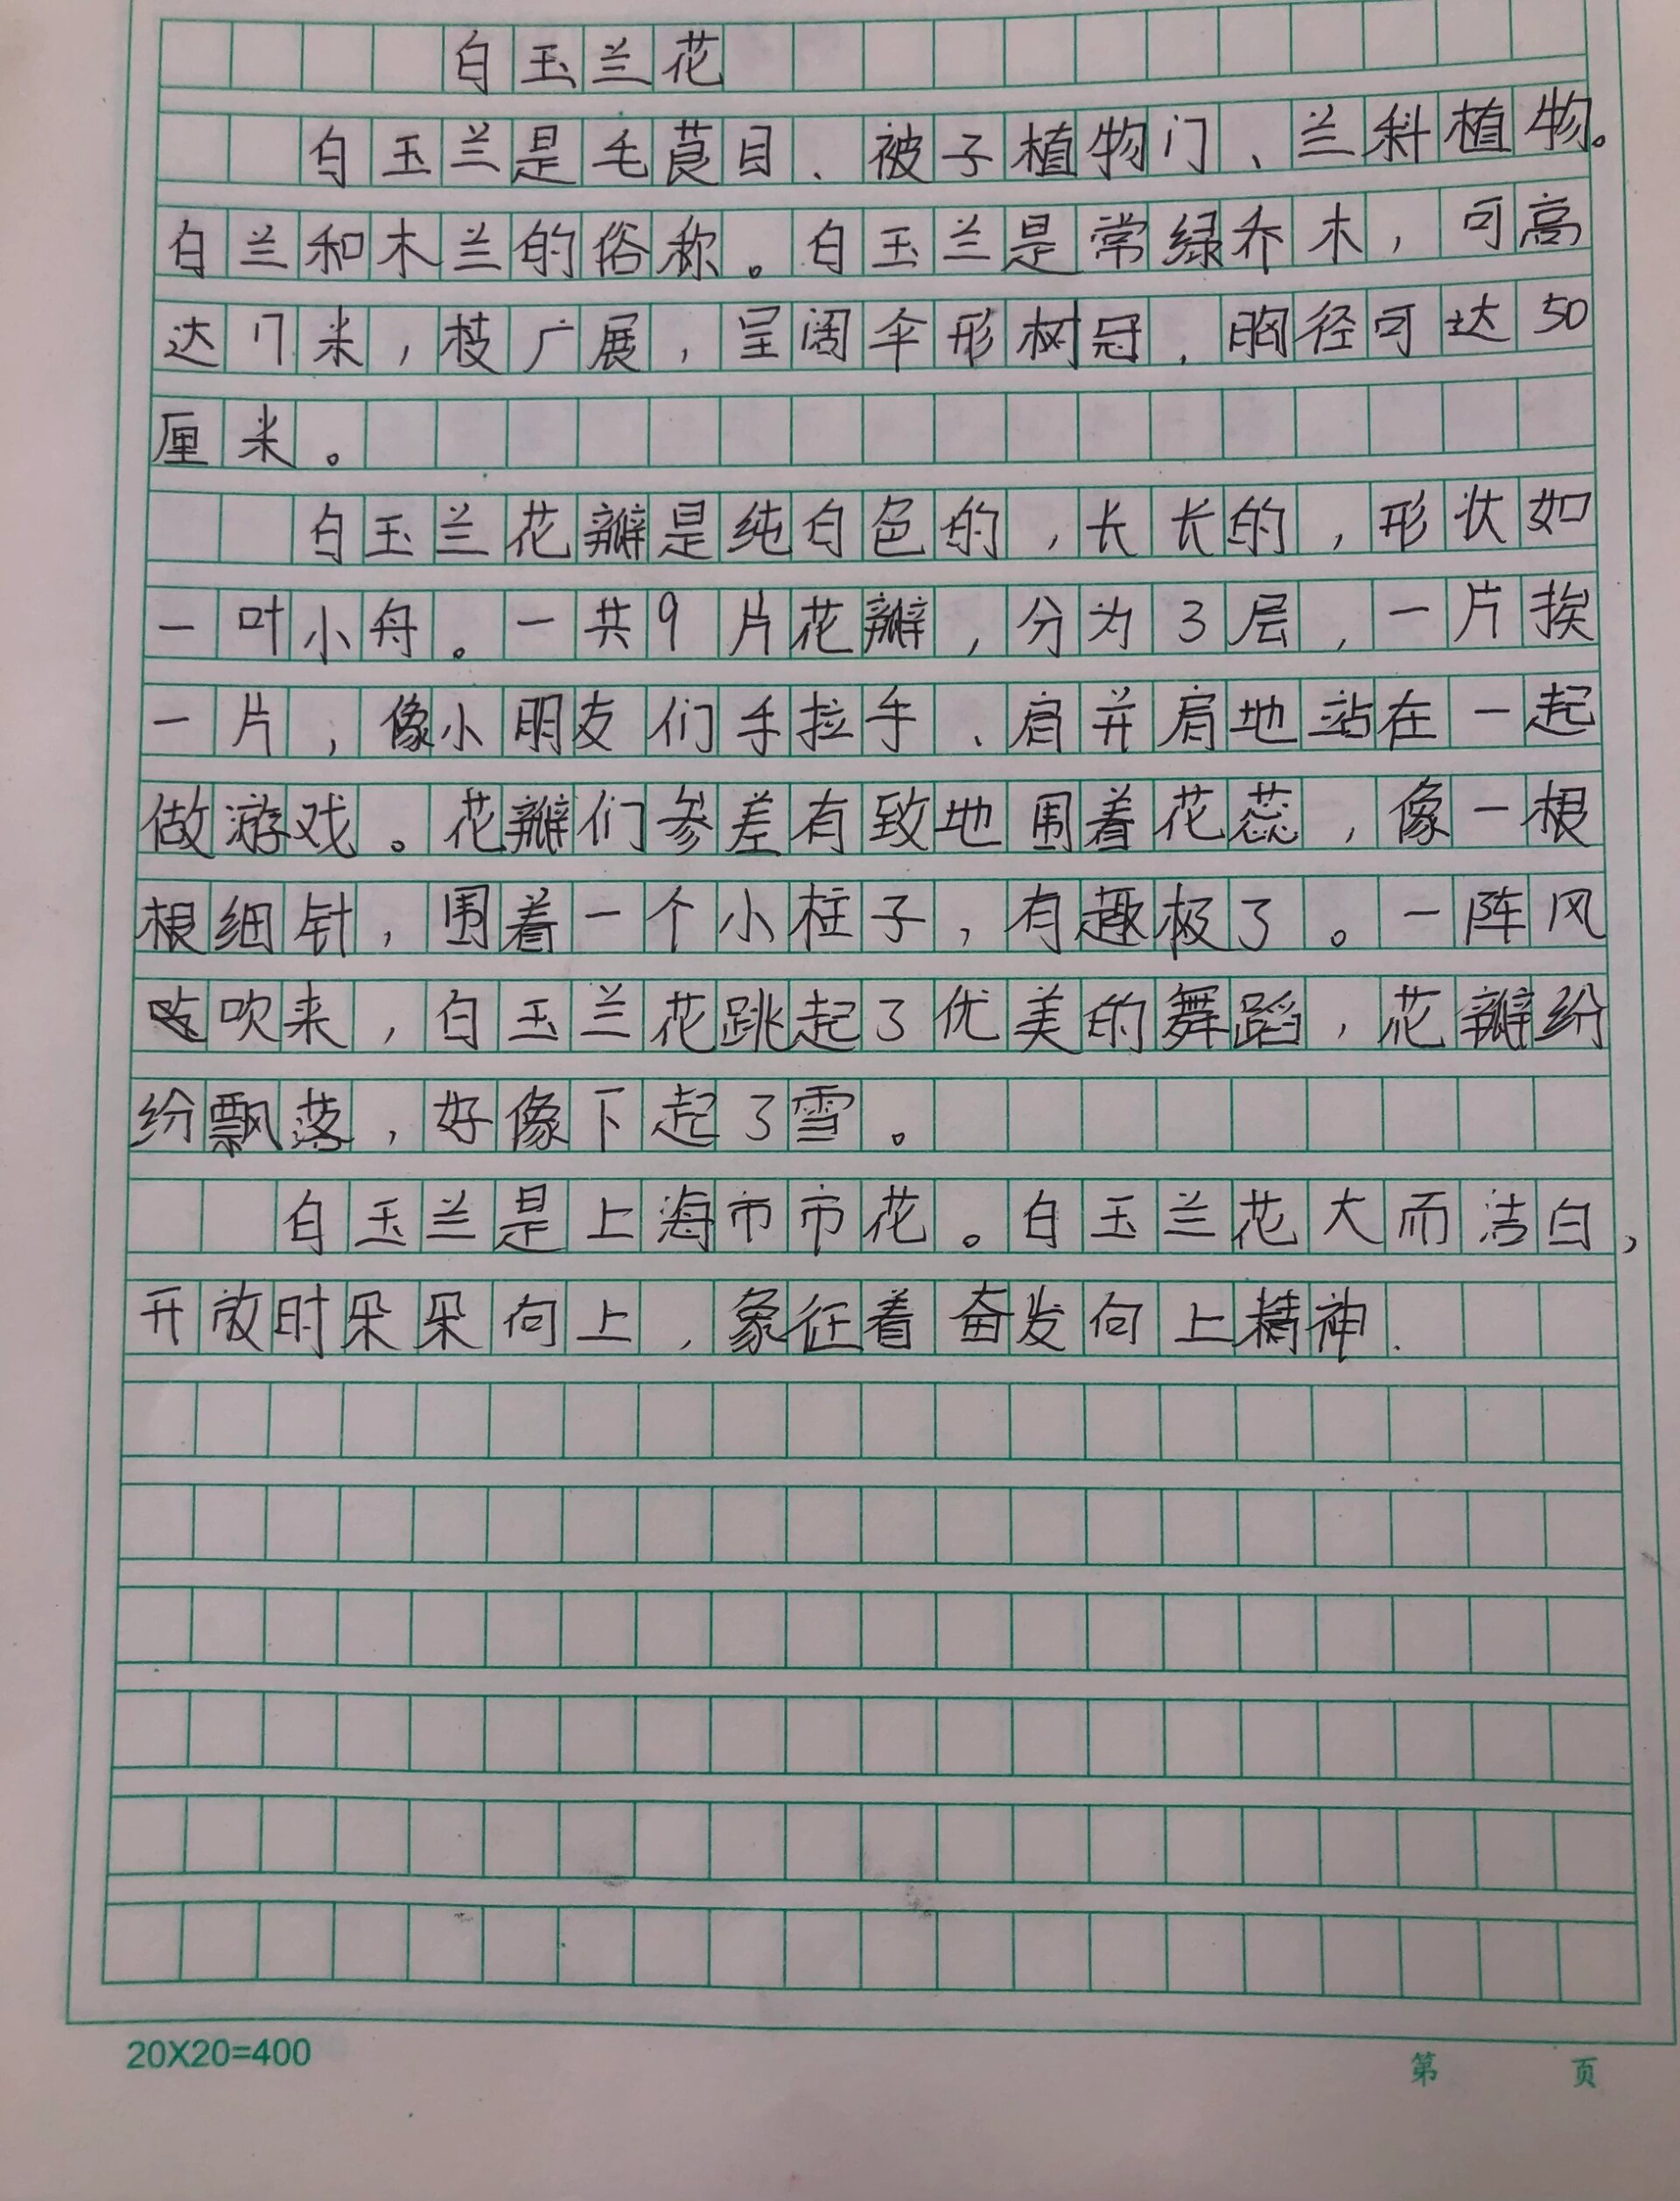 白玉兰花
白玉兰是毛茛目、被子植物门、兰科植物。
白兰和木兰的俗称。白玉兰是常绿乔木，可高
达17米，枝广展，呈阔伞形树冠，胸径可达50
厘米。
白玉兰花瓣是纯白色的，长长的，形状如
一叶小舟。一共9片花瓣，分为3层，一片挨
一片，像小朋友们手拉手、肩并肩地站在一起
做游戏。花瓣们参差有致地围着花蕊，像一根
根细针，围着一个小柱子，有趣极了。一阵风
吹来，白玉兰花跳起了优美的舞蹈，花瓣纷
纷飘落，好像下起了雪。
白玉兰是上海市市花。白玉兰花大而洁白，
开放时朵朵向上，象征着奋发向上精神.
20X20=400
第 页